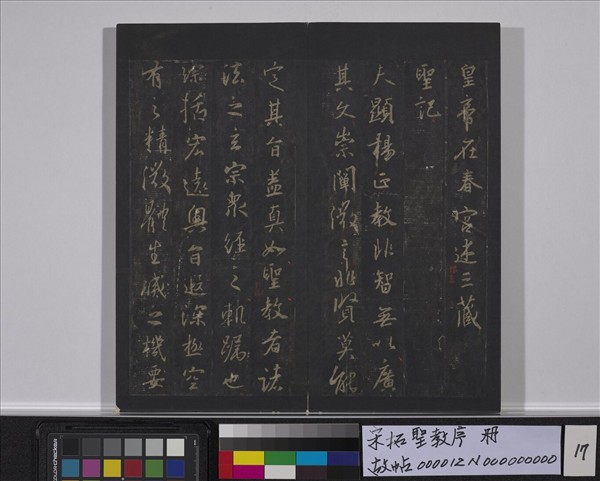 皇帝在春宮述三藏
聖記
夫顯揚正教非智無以廣
其文崇闡微言非賢莫能
定其旨蓋真如聖教者諸
法之玄宗衆經之軌躅也
綜括宏遠奧旨遐深極空
有之精微體生滅之機要
宋拓聖教序 冊
故帖000012N000000000
17